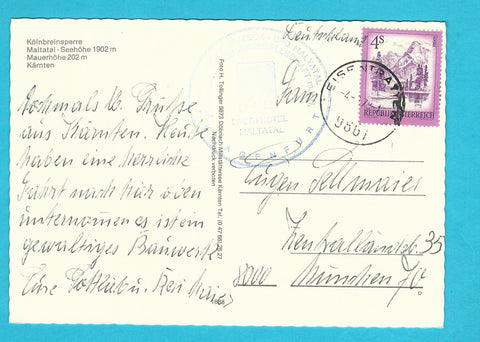 Kölnbreinsperre
Maltatal - Seehöhe 1902 m
Mauerhöhe 202 m
Kärnten
Nochmals lb. Grüße
aus Kärnten. Heute
haben eine herrliche
Fahrt nach hier oben
unternommen es ist ein
gewaltiges Bauwerk
Eure Gottlieb u. Resi Maier
Foto H. Tollinger 9873 Döbriach Millstättersee Kärnten Tel. (0 47 66) 82 27
Nachdruck verboten
SPORTHOTEL
MALTATAL
KLAGENFURT
Deutschland
4S
REPUBLIK ÖSTERREICH
EISENTRATTEN
9861
Fam.
Eugen Sellmaier
Zentralländstr. 35
8000 München 70